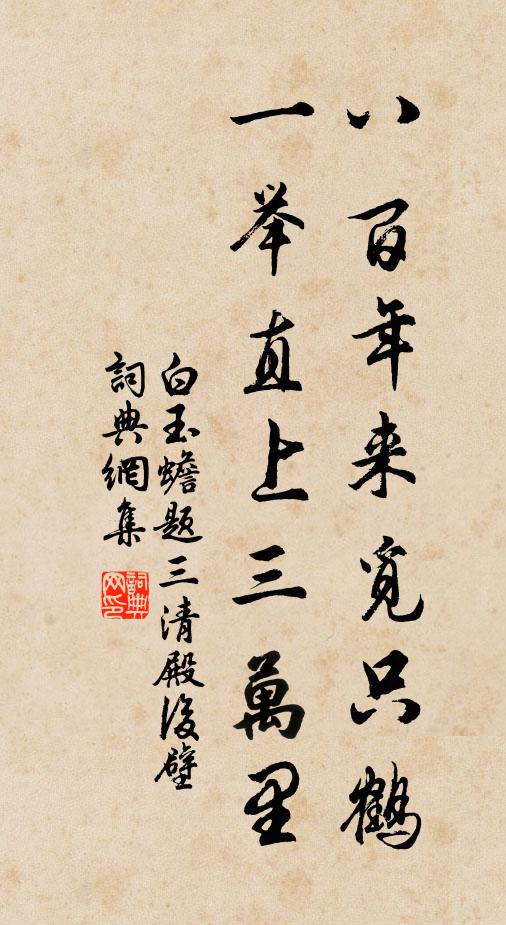 八百年来覓只鶴
一举直上三萬里
白玉蟾题三清殿後壁
詞典網集
詞典网印